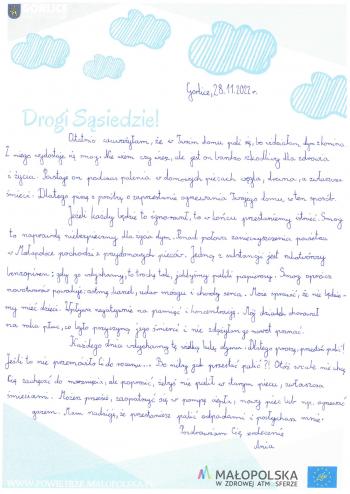 GORLICE
Gorlice, 28.11.2022r.
Drogi Sąsiedzie!
Ostatnio zauważyłam, że w Twoim domu pali się, bo widziałam dym z komina.
Z niego wydostaje się smog. Nie wiem czy wiesz, ale jest on bardzo szkodliwy dla zdrowia
i życia. Powstaje on podczas palenia w domowych piecach węgla, drewna, a zwłaszcza
śmieci. Dlatego proszę o zaprzestanie ogrzewania Twojego domu w ten sposób.
Jeżeli każdy będzie to ignorował, to w końcu przestaniemy istnieć. Smog
to naprawdę niebezpieczny dla życia dym. Ponad połowa zanieczyszczenia powietrza
w Małopolsce pochodzi z przydomowych pieców. Jedną z substancji jest rakotwórczy
benzopiren; gdy go wdychamy, to trochę tak, jakbyśmy palili papierosy. Smog oprócz
nowotworów powoduje: astmę, udar mózgu i choroby serca. Może sprawić, że nie będzie-
my mieć dzieci. Wpływa negatywnie na pamięć i koncentrację. Mój dziadek chorował
na raka płuc, co było przyczyną jego śmierci i nie zdążyłam go nawet poznać.
Każdego dnia wdychamy tę wielką ilość dymu. Dlatego proszę, przestań palić!
Jeśli to nie przemówiło Ci do rozumu... Do kiedy jak przestać palić?! Otóż wcale nie chcę
Cię zachęcić do marznięcia, ale poprosić, żebyś nie palił w starym piecu, zwłaszcza
śmieciami. Możesz przecież zaopatrzyć się w pompę ciepła, nowy piec lub np. ogrzewać
gazem. Mam nadzieję, że przestaniesz palić odpadami i posłuchasz mnie.
Pozdrawiam Cię serdecznie
Ania
WWW.POWIETRZE.MALOPOLSKA.PL
MAŁOPOLSKA
W ZDROWEJ ATMOSFERZE